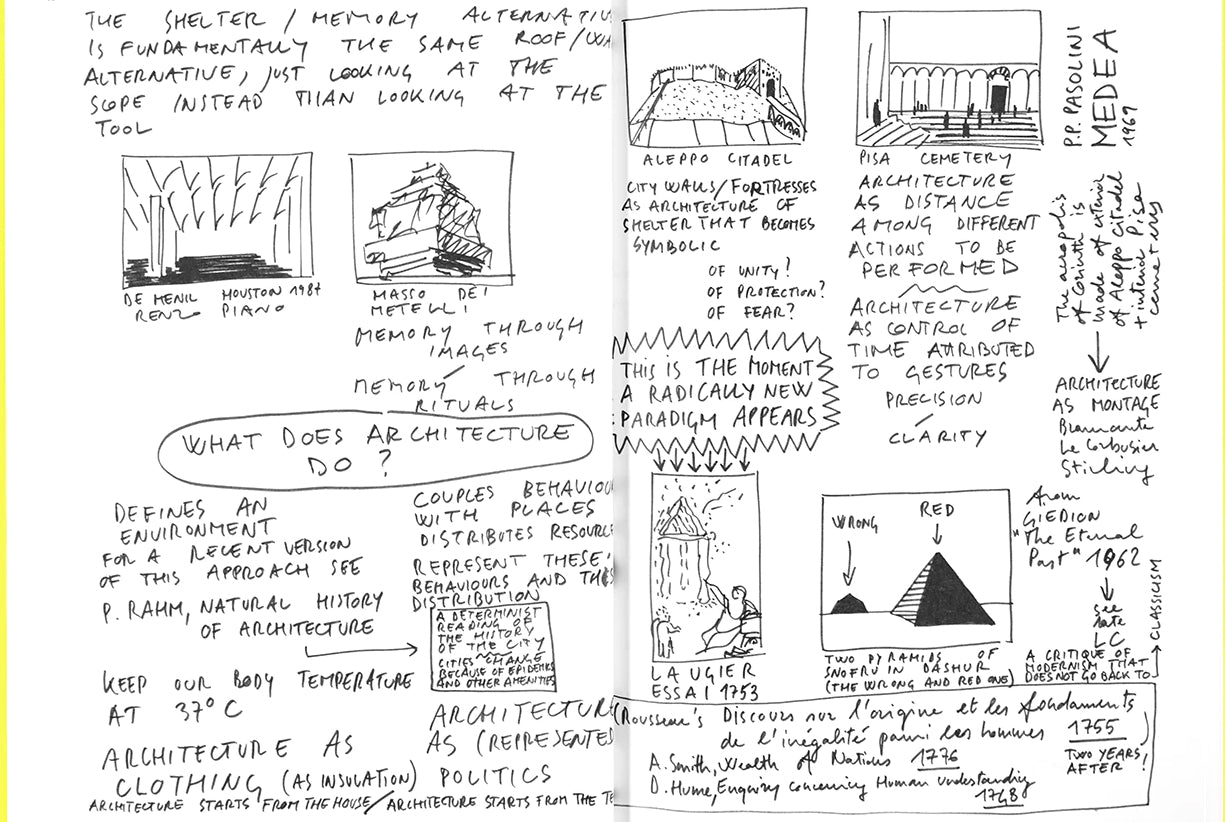 THE SHELTER / MEMORY ALTERNATIV
IS FUNDAMENTALLY THE SAME ROOF/WA
ALTERNATIVE, JUST LOOKING AT THE
SCOPE INSTEAD THAN LOOKING AT THE
TOOL
DE MENIL HOUSTON 1987
RENZO PIANO
MASSO DEI
METELLI
MEMORY THROUGH
IMAGES
/
MEMORY THROUGH
RITUALS
WHAT DOES ARCHITECTURE
DO ?
DEFINES AN
ENVIRONMENT
FOR A RECENT VERSION
OF THIS APPROACH SEE
P. RAHM, NATURAL HISTORY
OF ARCHITECTURE
KEEP OUR BODY TEMPERATURE
AT 37° C
ARCHITECTURE AS
CLOTHING (AS INSULATION)
ARCHITECTURE STARTS FROM THE HOUSE / ARCHITECTURE STARTS FROM THE TE
COUPLES BEHAVIOU
WITH PLACES
DISTRIBUTES RESOURCE
REPRESENT THESE
BEHAVIOURS AND THIS
DISTRIBUTION
A DETERMINIST
READING OF
THE HISTORY
OF THE CITY
CITIES CHANGE
BECAUSE OF EPIDEMICS
AND OTHER AMENITIES
ARCHITECTURE
AS (REPRESENTE
POLITICS
ALEPPO CITADEL
CITY WALLS/FORTRESSES
AS ARCHITECTURE OF
SHELTER THAT BECOMES
SYMBOLIC
OF UNITY?
OF PROTECTION?
OF FEAR?
THIS IS THE MOMENT
A RADICALLY NEW
PARADIGM APPEARS
LAUGIER
ESSAI 1753
PISA CEMETERY
ARCHITECTURE
AS DISTANCE
AMONG DIFFERENT
ACTIONS TO BE
PERFORMED
ARCHITECTURE
AS CONTROL OF
TIME ATTRIBUTED
TO GESTURES
PRECISION
/
CLARITY
P.P. PASOLINI
MEDEA
1969
The acropolis
of Corinth is
made of exterior
of Aleppo Citadel
+ interior Pisa
cemetery
ARCHITECTURE
AS MONTAGE
Bramante
Le Corbusier
Stirling
WRONG
RED
TWO PYRAMIDS OF
SNOFRU IN DASHUR
(THE WRONG AND RED ONE)
from
GIEDION
"The Eternal
Past" 1962
see
late
LC
A CRITIQUE OF
MODERNISM THAT
DOES NOT GO BACK TO
CLASSICISM
(Rousseau's Discours sur l'origine et les fondaments
de l'inégalité parmi les hommes 1755
TWO YEARS
AFTER!
A. Smith, Wealth of Nations 1776
D. Hume, Enquiry concerning Human Understanding
1748